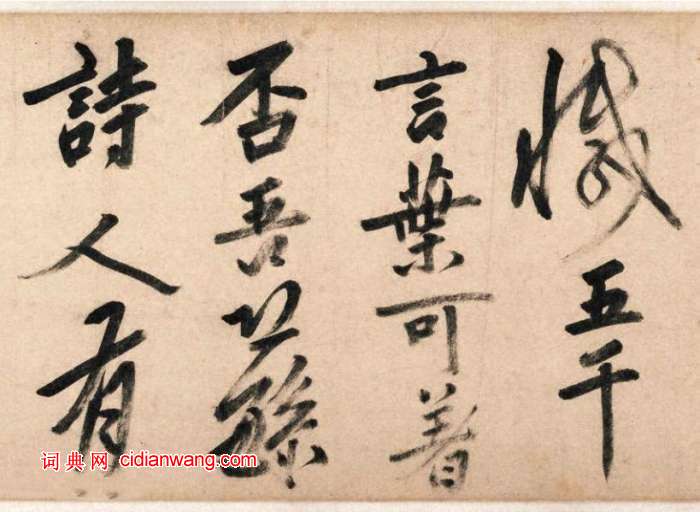 五千
言葉可著
否吾
詩人有
词典网 cidianwang.com